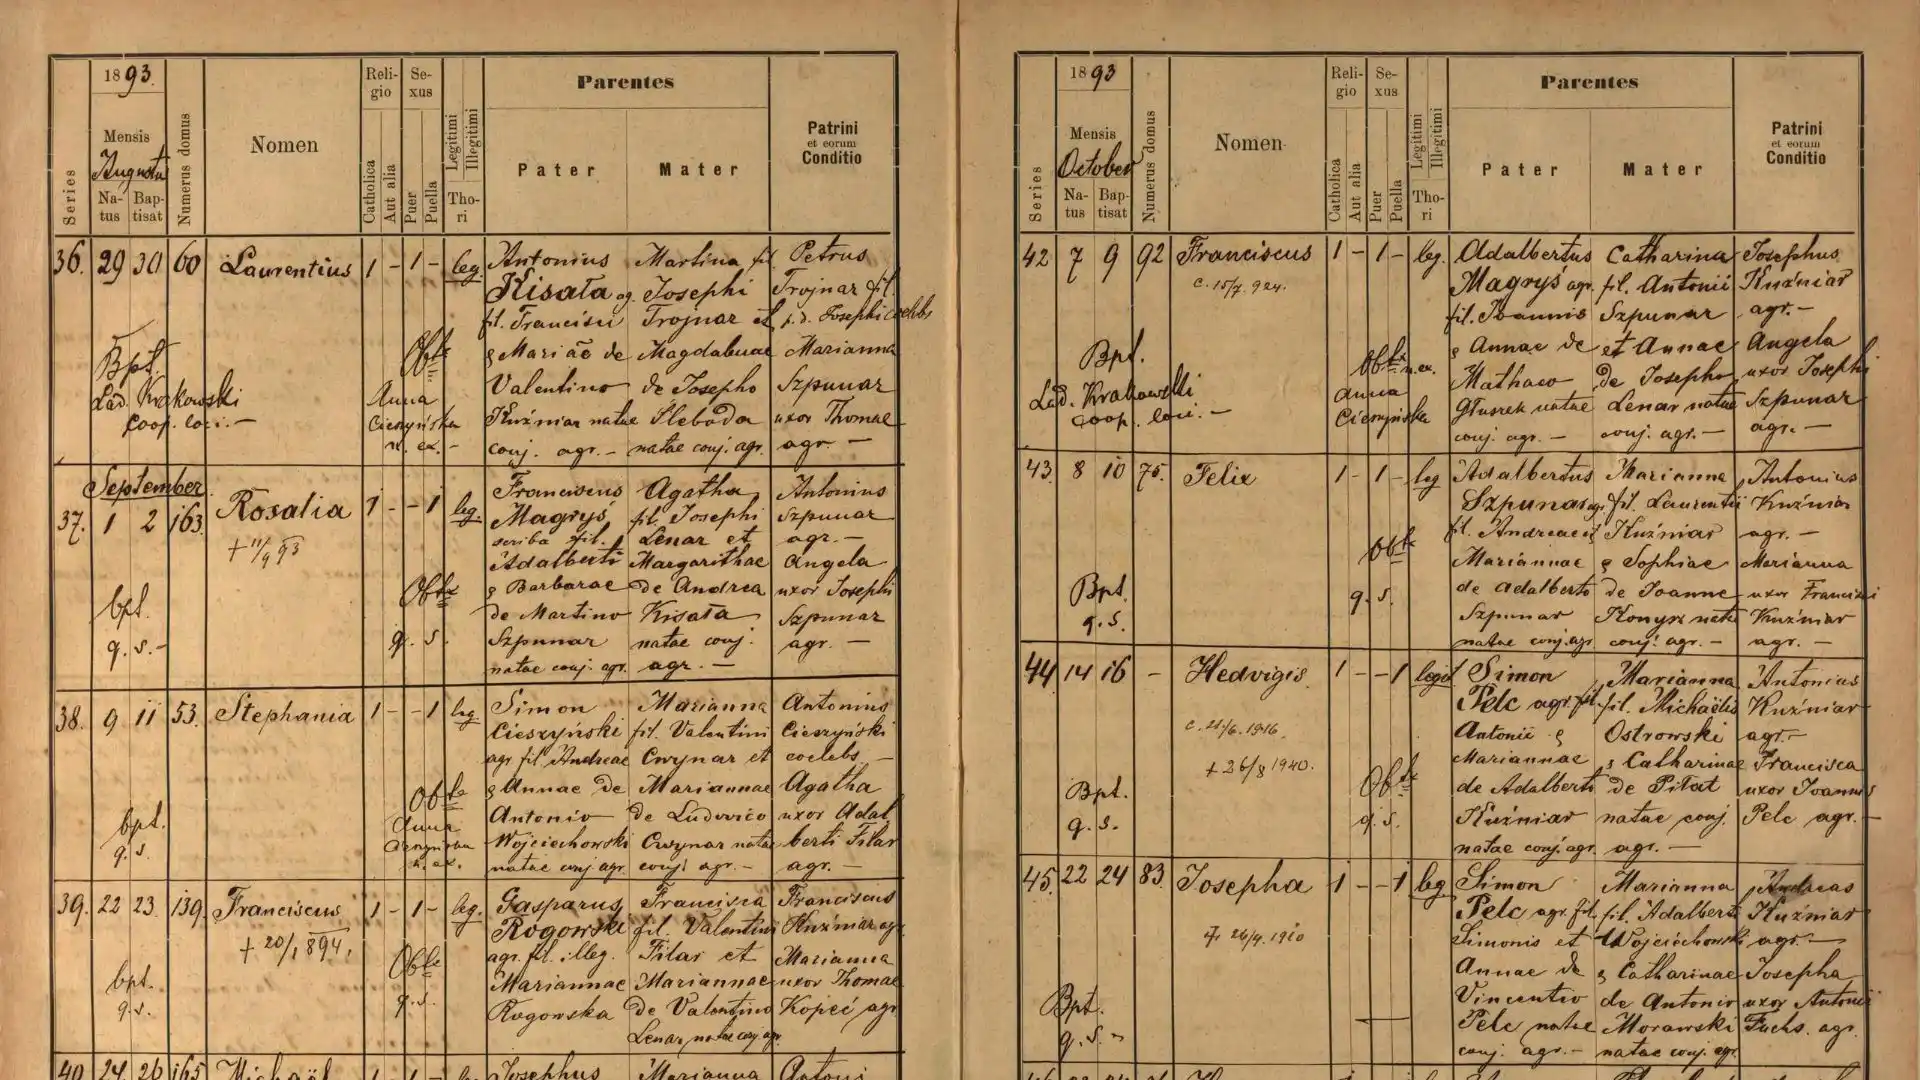 1893.
Mensis
Augustus
Series
Natus
Baptisat
Numerus domus
Nomen
Religio
Catholica
Aut alia
Sexus
Puer
Puella
Legitimi
Illegitimi
Thori
Parentes
Pater
Mater
Patrini
et eorum
Conditio
36. 29 30 60 Laurentius 1 - 1 - leg.
Antonius
Kisała ag.
fil. Francisci
& Mariae de
Valentino
Kuźniar natae
conj. agr. -
Martina fil.
Josephi
Trojnar et
Magdalenae
de Josepho
Śleboda
natae conj. agr.
Petrus
Trojnar fil.
p. d. Josephi coelebs
Marianna
Szpunar
uxor Thomae
agr. -
Bpt.
Lad. Krakowski
coop. loci. -
Obst.
Anna
Cieszyńska
n. ex. -
September
37. 1 2 163. Rosalia 1 - - 1 leg.
+ 11/9 93
Franciscus
Magryś
scriba fil.
Adalberti
& Barbarae
de Martino
Szpunar
natae conj. agr.
Agatha
fil. Josephi
Lenar et
Margarithae
de Andrea
Kisała
natae conj.
agr. -
Antonius
Szpunar
agr. -
Angela
uxor Josephi
Szpunar
agr. -
bpt.
q. s. -
Obst.
q. s.
38. 9 11 53. Stephania 1 - - 1 leg.
Simon
Cieszyński
agr. fil. Andreae
& Annae de
Antonio
Wojciechowski
natae conj. agr.
Marianna
fil. Valentini
Cwynar et
Mariannae
de Ludovico
Cwynar natae
conj. agr. -
Antonius
Cieszyński
coelebs. -
Agatha
uxor Adal
berti Filar
agr. -
bpt.
q. s.
Obst.
Anna
n. ex.
39. 22 23. 139. Franciscus 1 - 1 - leg.
+ 20/1 894.
Gasparus
Rogowski
agr. fil. illeg.
Mariannae
Rogowska
Francisca
fil. Valentini
Filar et
Mariannae
de Valentino
Lenar, natae conj. agr.
Franciscus
Kuźniar agr.
Marianna
uxor Thomae
Kopeć agr.
bpt.
q. s.
Obst.
q. s.
40. 24 26 165 Michaël 1 - 1 - leg
Josephus
Marianna
Antoni
1893
Mensis
October
Series
Natus
Baptisat
Numerus domus
Nomen
Religio
Catholica
Aut alia
Sexus
Puer
Puella
Legitimi
Illegitimi
Thori
Parentes
Pater
Mater
Patrini
et eorum
Conditio
42 7 9 92 Franciscus 1 - 1 - leg.
c. 15/7. 924.
Adalbertus
Magryś agr.
fil. Joannis
& Annae de
Mathaeo
Głuszek natae
conj. agr. -
Catharina
fil. Antonii
Szpunar
et Annae
de Josepho
Lenar natae
conj. agr. -
Josephus
Kuźniar
agr. -
Angela
uxor Josephi
Szpunar
agr. -
Bpt.
Lad. Krakowski
coop. loci. -
Obst. n. ex.
Anna
Cieszyńska
43. 8 10 75. Felix 1 - 1 - leg
Adalbertus
Szpunar agr.
fil. Andreae et
Mariannae
de Adalberto
Szpunar
natae conj. agr.
Marianna
fil. Laurentii
Kuźniar
& Sophiae
de Joanne
natae
conj. agr. -
Antonius
Kuźniar
agr. -
Marianna
uxor Francisci
Kuźniar
agr. -
Bpt.
q. s.
Obst.
q. s.
44 14 16 - Hedvigis 1 - - 1 legit
c. 21/6. 1916.
+ 26/8 1940.
Simon
Pelc agr. fil.
Antonii &
Mariannae
de Adalberti
Kuźniar
natae conj. agr.
Marianna
fil. Michaëlis
Ostrowski
& Catharinae
de Pitat
natae conj.
agr. -
Antonius
Kuźniar
agr. -
Francisca
uxor Joannis
Pelc agr. -
Bpt.
q. s.
Obst.
q. s.
45. 22 24 83. Josepha 1 - - 1 leg
+ 26/4. 1910
Simon
Pelc agr. fil.
Simonis et
Annae de
Vincentio
Pelc natae
conj. agr. -
Marianna
fil. Adalberti
Wojciechowski
& Catharinae
de Antonio
Morawski
natae conj. agr.
Andreas
Kuźniar
agr. -
Josepha
uxor Antonii
Fuchs. agr.
Bpt.
q. s. -